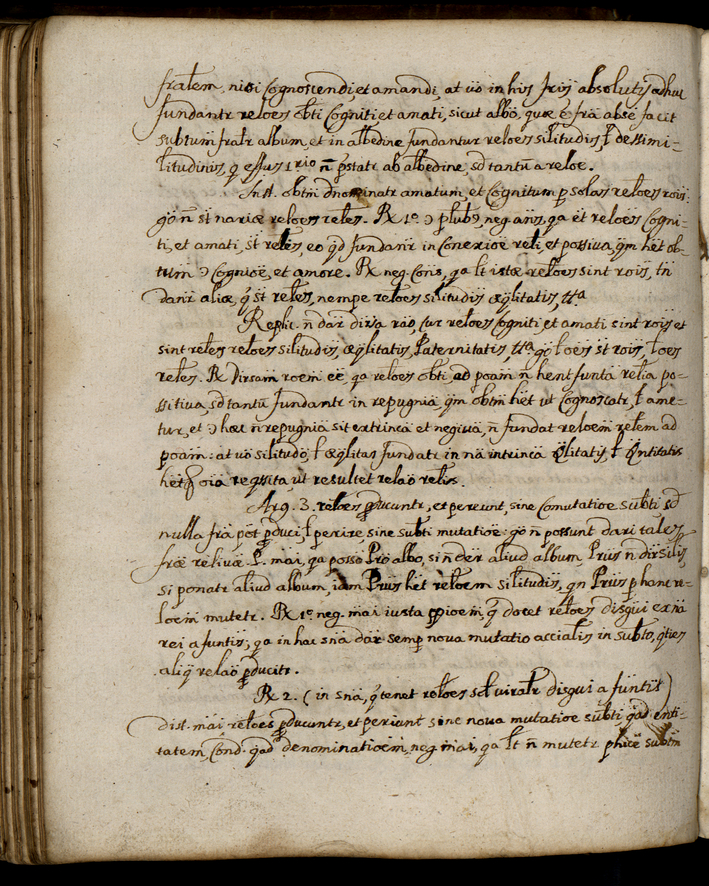 fralem, nisi cognoscendi, et amandi, at vo in his fris absolutis adhuc
fundantr reloes obti cogniti, et amati, sicut albo, quæ e fra abse facit
subtum fralr album, et in albedine fundantur reloes silitudis, l dessimi-
litudinis, q effus 1rio n pstatr ab albedine, sd tantu a reloe.
Inst. obtm dnominatr amatum, et cognitum p solas reloes rois:
go n st nariæ reloes reles. Rx 1o. neg. ans, qa et reloes cogni-
ti, et amati, st reles, eo qd fundanr in conexioe reli, et possiva, qm het ob-
tum cognioe, et amore. Rx neg. cons, qa lt istæ reloes sint rois, tn
danr aliæ, q st reles, nempe reloes silitudis æqlitatis, tta
Replic. n dar dirsa rao, cur reloes cogniti et amati sint rois et
sint reles reloes silitudis, æqlitatis, Paternitatis, tta. go l oes st rois, l oes
reles. Rx dirsam roem ee, qa reloes obti, ad poam n hent funta relia po-
ssitiva, sd tantu fundantr in repugnia, qm obtm het ut cognoscatr, l ame-
tur, et hæc n repugnia sit extrinca et negiva, n fundat reloem relem ad
poam: at vo silitudo, l æqlitas fundatr in na intrinca qlitatis, l qntitatis
het oia reqssita, ut resultet relao relis.
Arg. 3. reloes pducuntr, et pereunt, sine comutatioe subti, sd
nulla fra pot pduci, l perire, sine subti mutatioe: go n possunt dari tales
fræ relivæ. P. mai, qa posso Pro albo, si n der aliud album, Prius n dir silis,
si ponatr aliud album, iam Prius het reloem silitudis, qn Prius p hanc re-
loem mutetr. Rx 1o. neg. mai iusta opioem, q docet reloes disgui ex na
rei a funtis; qa in hac sna dar semp nova mutatio accialis in subto, qties
aliq relao pducitr.
Rx 2. (in sna, q tenet reloes sd viralr disgui a funtis)
dist. mai, reloes pducuntr, et periunt sine nova mutatioe subti qad enti-
tatem, cond. qad denominatioem, neg mai, qa lt n mutetr phice subtm